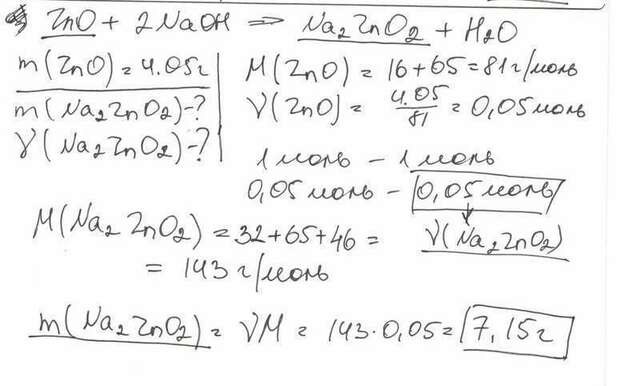 ZnO + 2NaOH => Na2ZnO2 + H2O
m(ZnO) = 4.05г
m(Na2ZnO2)-?
γ(Na2ZnO2)-?
M(ZnO) = 16+65=81г/моль
V(ZnO) = 4.05/81 = 0,05моль
1 моль - 1 моль
0,05моль - 0,05моль
V(Na2ZnO2)
M(Na2ZnO2) = 32+65+46 =
= 143г/моль
m(Na2ZnO2) = VM = 143·0,05= 7,15г